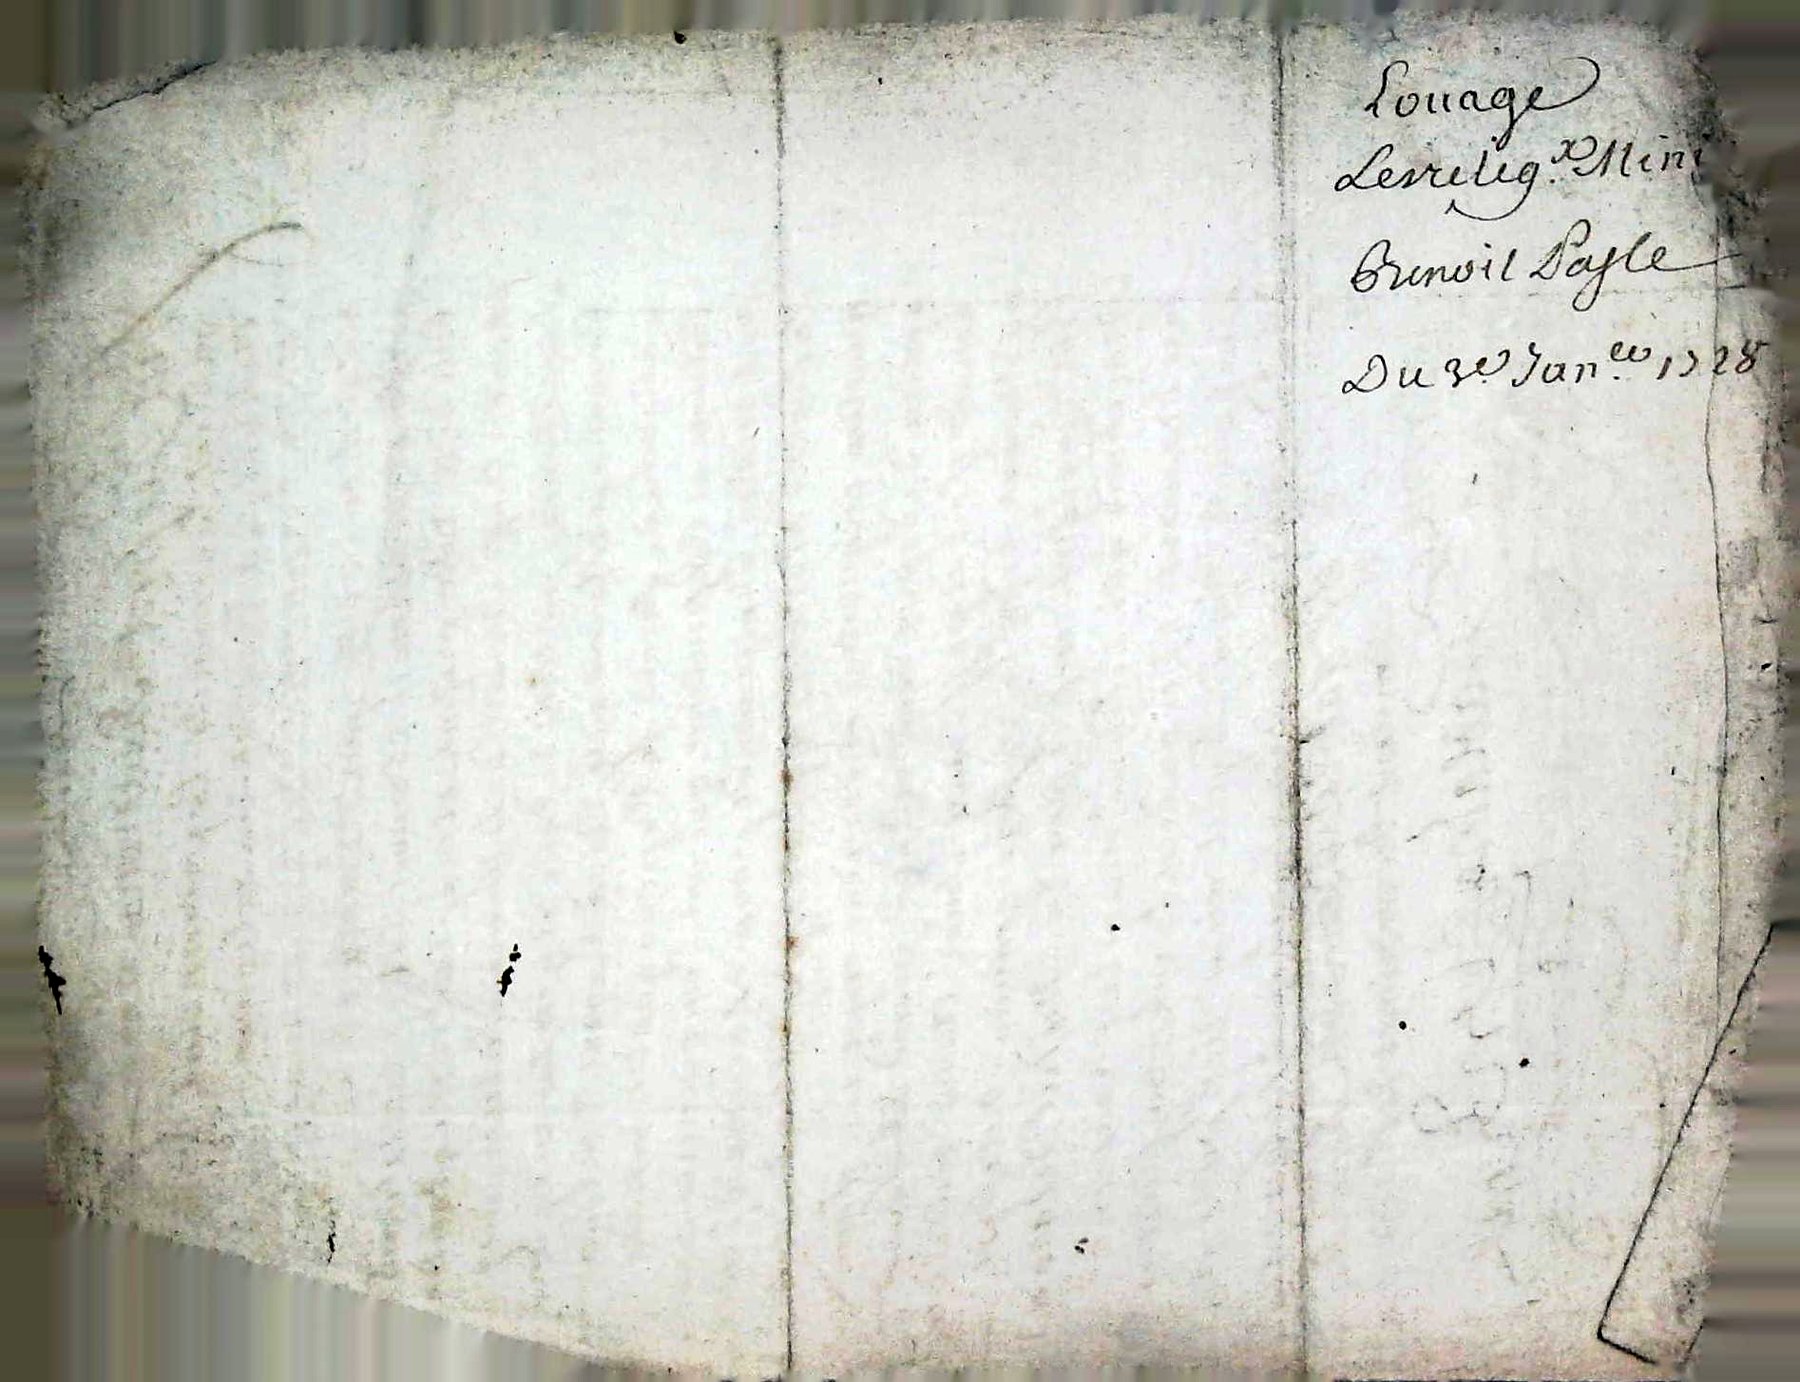 Louage
Les relig.x Mini
Benoit Pasle
Du 3e. Jan.er 1728